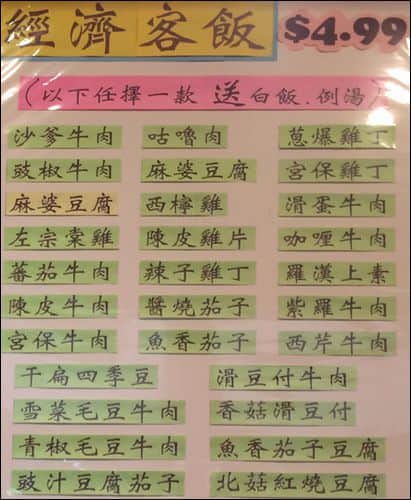 經濟客飯 $4.99
(以下任擇一款 送 白飯.例湯)
沙爹牛肉 咕嚕肉 蔥爆雞丁
豉椒牛肉 麻婆豆腐 宮保雞丁
麻婆豆腐 西檸雞 滑蛋牛肉
左宗棠雞 陳皮雞片 咖喱牛肉
蕃茄牛肉 辣子雞丁 羅漢上素
陳皮牛肉 醬燒茄子 紫羅牛肉
宮保牛肉 魚香茄子 西芹牛肉
干扁四季豆 滑豆付牛肉
雪菜毛豆牛肉 香菇滑豆付
青椒毛豆牛肉 魚香茄子豆腐
豉汁豆腐茄子 北菇紅燒豆腐